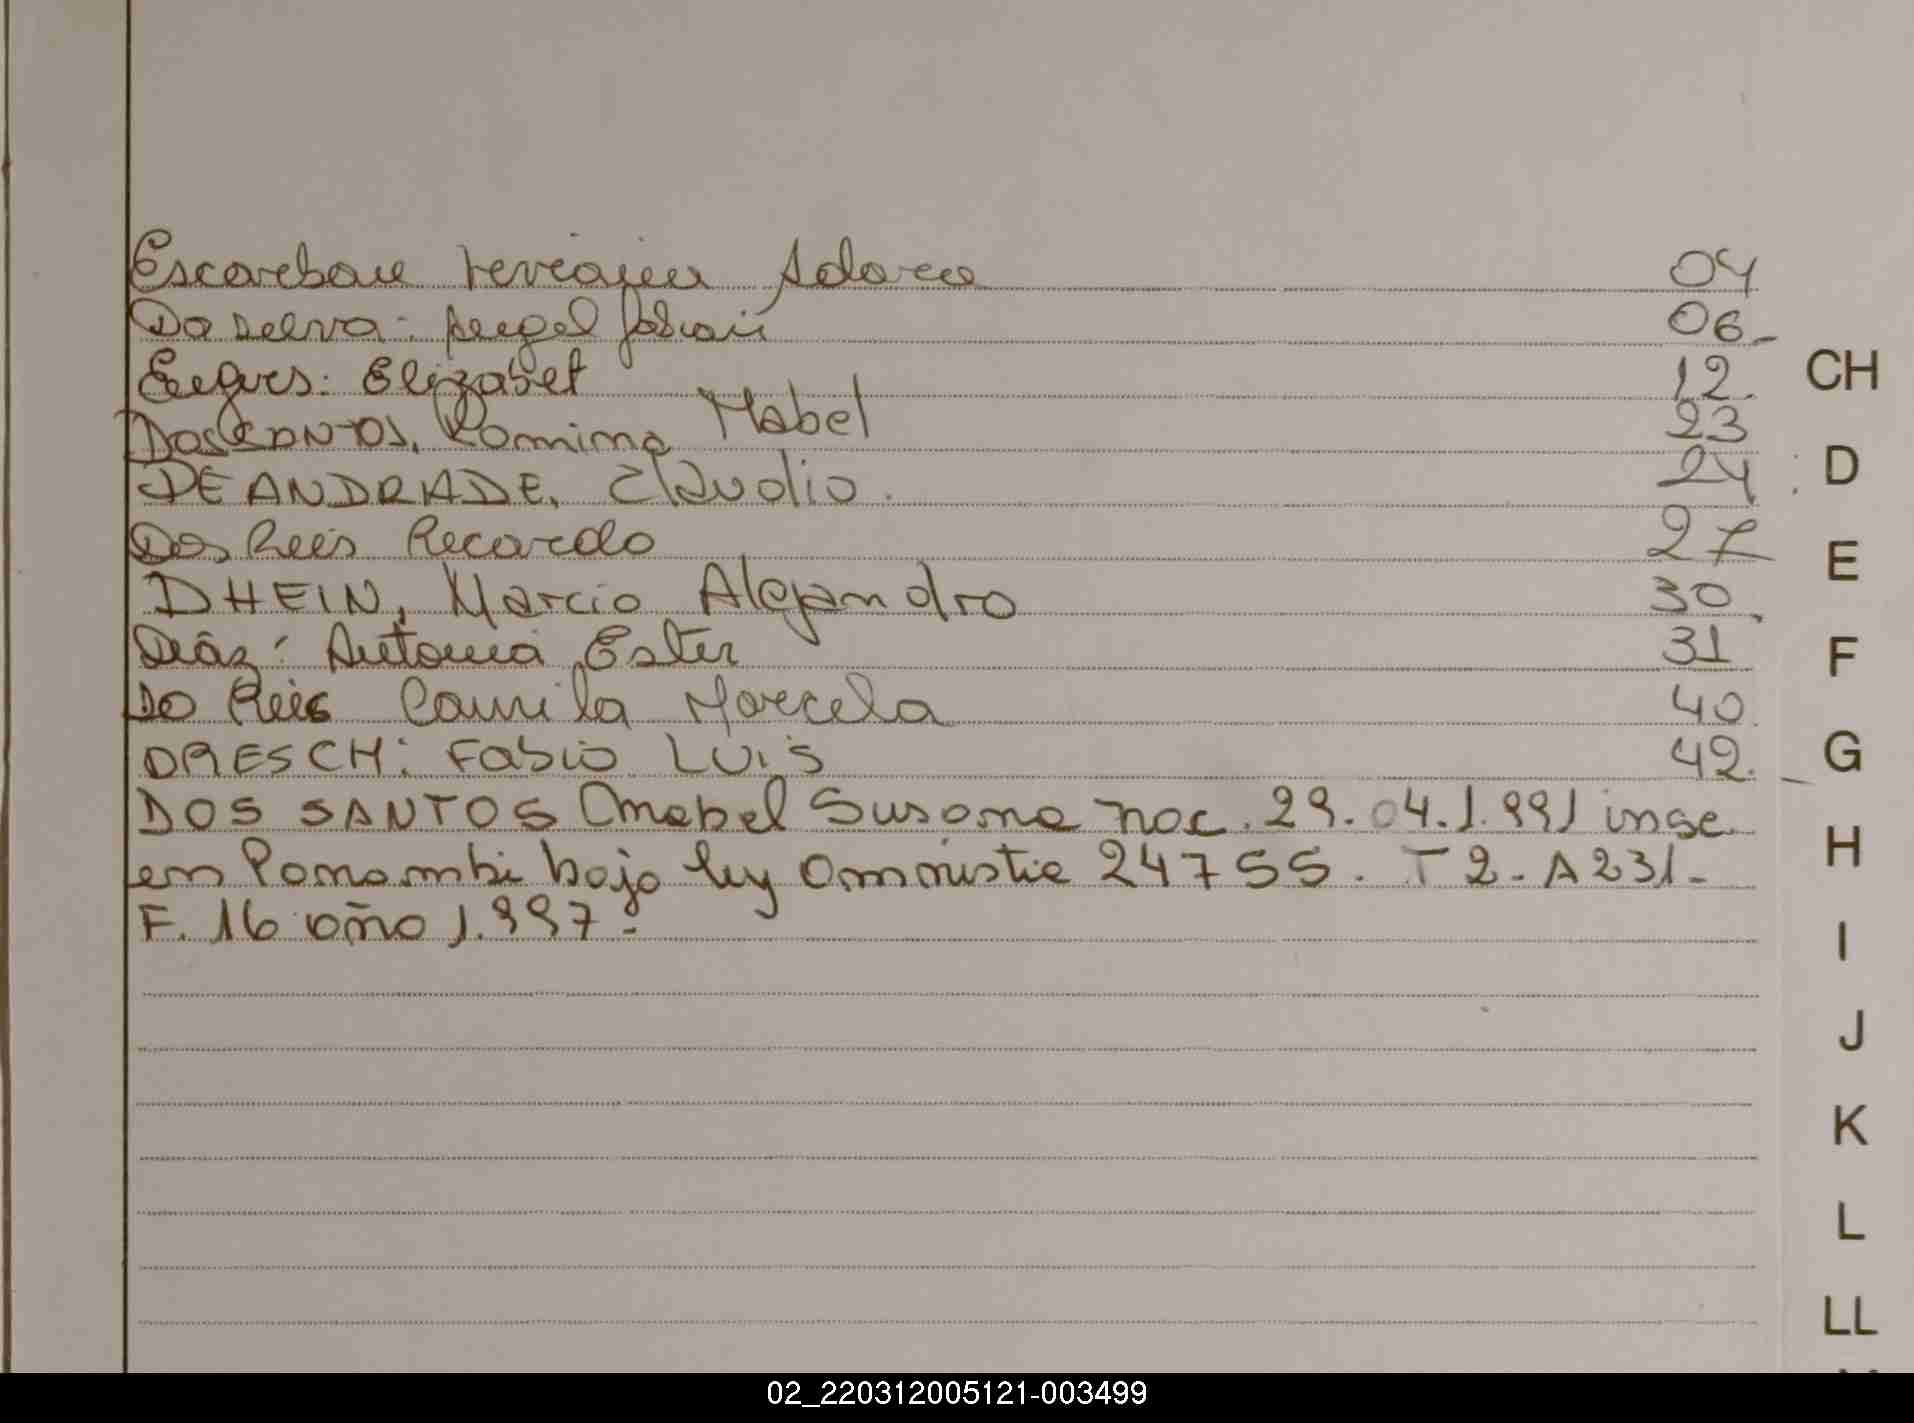 Escarbau Adarea 04
Da Selva: Angel Fabian 06.-
Engers: Elizabet 12.
DosSANTOS, Romina Mabel 23
DE ANDRADE, Claudio. 24
Dos Reis Ricardo 27
DHEIN, Marcio Alejandro 30.
Diaz: Antonia Ester 31
Do Reis Camila Marcela 40.
DRESCH: Fabio LUiS 42.
DOS SANTOS Anabel Susana nac. 29.04.1.991 insc
en Panambi bajo ley amnistia 24755. T2- A231-
F. 16 año 1.997.-
CH
D
E
F
G
H
I
J
K
L
LL
02_220312005121-003499